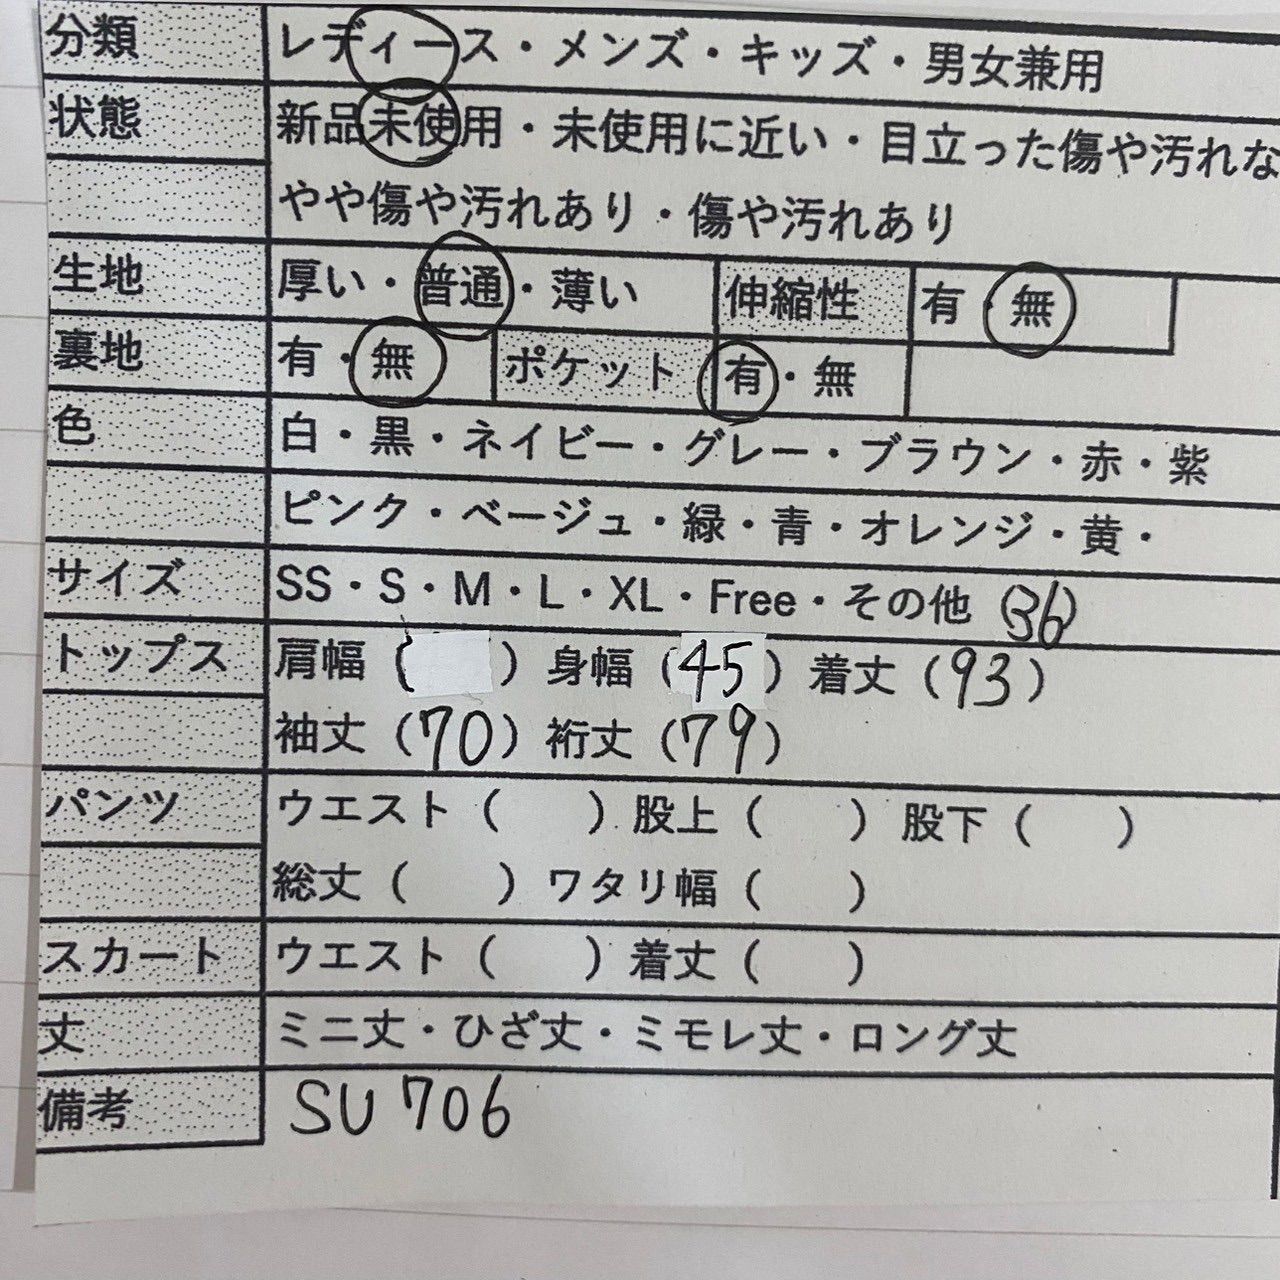 分類 レディース・メンズ・キッズ・男女兼用
状態 新品未使用・未使用に近い・目立った傷や汚れな
やや傷や汚れあり・傷や汚れあり
生地 厚い・普通・薄い 伸縮性 有・無
裏地 有・無 ポケット 有・無
色 白・黒・ネイビー・グレー・ブラウン・赤・紫
ピンク・ベージュ・緑・青・オレンジ・黄・
サイズ SS・S・M・L・XL・Free・その他 (36)
トップス 肩幅( ) 身幅(45) 着丈(93)
袖丈(70) 裄丈(79)
パンツ ウエスト( ) 股上( ) 股下( )
総丈( ) ワタリ幅( )
スカート ウエスト( ) 着丈( )
丈 ミニ丈・ひざ丈・ミモレ丈・ロング丈
備考 SU706